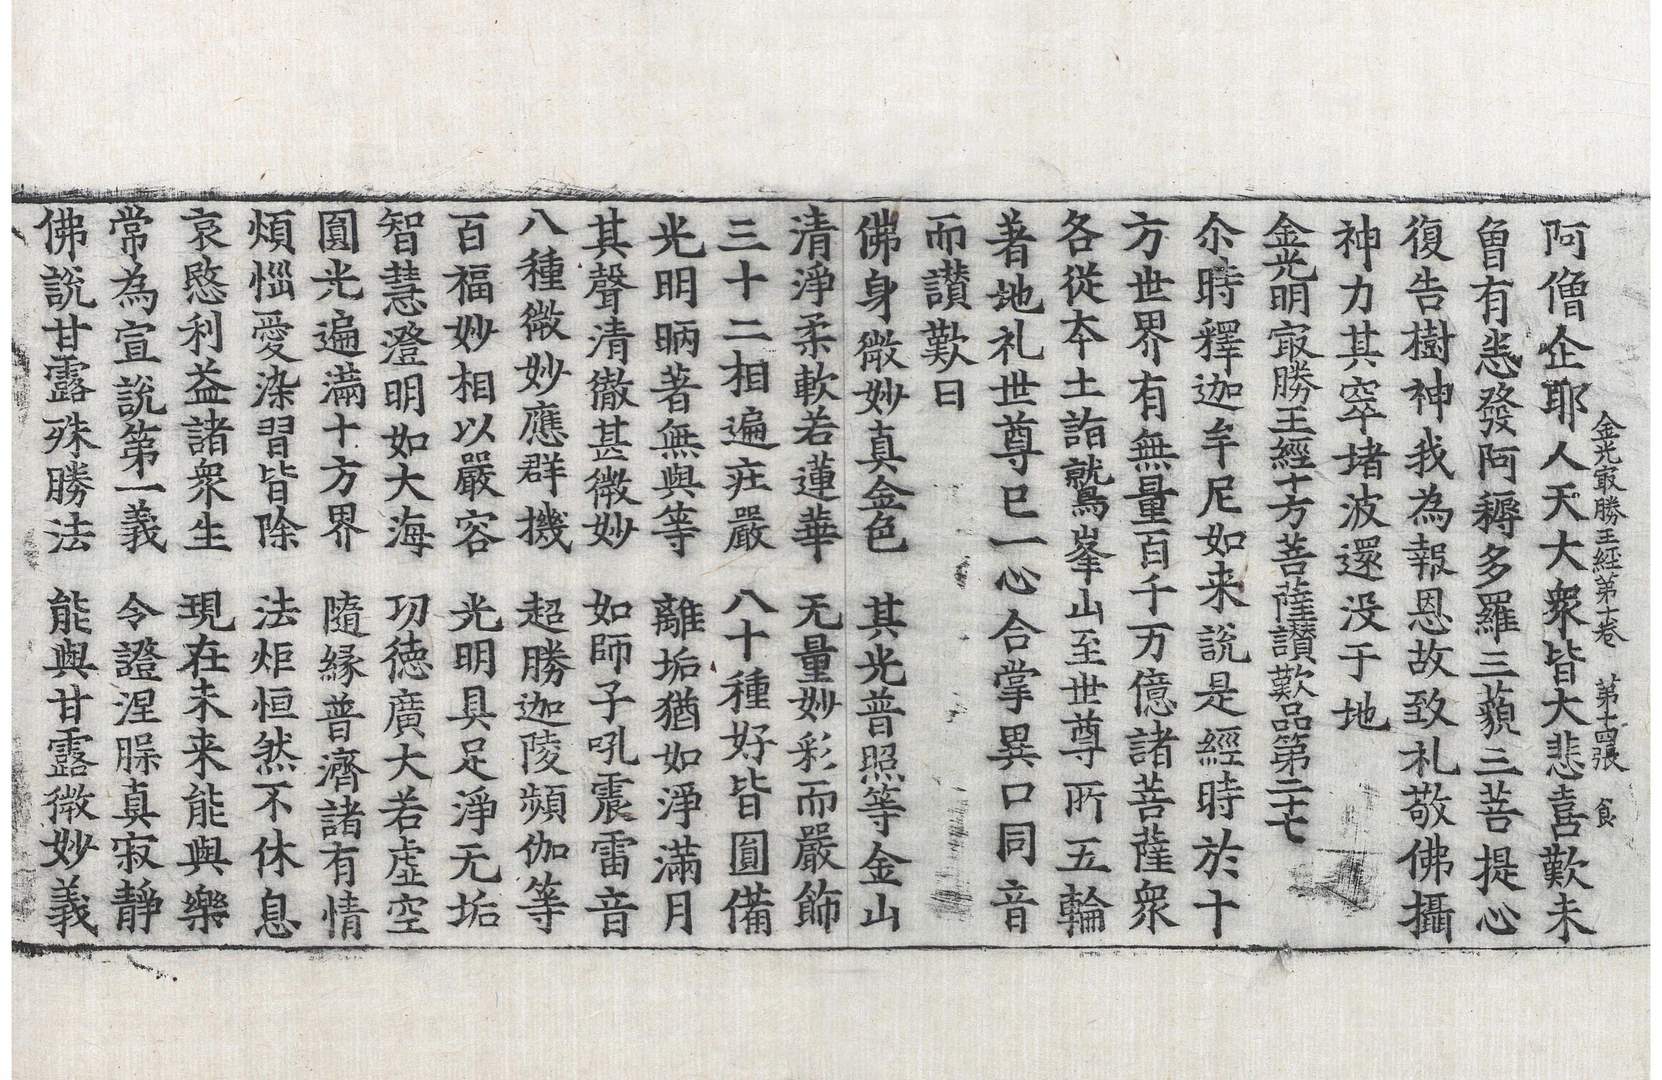 金光㝡勝王經第十卷　第十四張　食
阿僧企耶人天大衆皆大悲喜歎未
曾有悉發阿耨多羅三藐三菩提心
復告樹神我為報恩故致礼敬佛攝
神力其窣堵波還没于地
金光明㝡勝王經十方菩薩讃歎品第二十七
尒時釋迦牟尼如来說是經時於十
方世界有無量百千万億諸菩薩衆
各從本土詣鷲峯山至世尊所五輪
著地礼世尊已一心合掌異口同音
而讃歎曰
佛身微妙真金色　其光普照等金山
清淨柔軟若蓮華　无量妙彩而嚴飾
三十二相遍莊嚴　八十種好皆圓備
光明昞著無與等　離垢猶如淨滿月
其聲清徹甚微妙　如師子吼震雷音
八種微妙應群機　超勝迦陵頻伽等
百福妙相以嚴容　光明具足淨无垢
智慧澄明如大海　功德廣大若虛空
圓光遍滿十方界　隨緣普濟諸有情
煩惱愛染習皆除　法炬恒然不休息
哀愍利益諸衆生　現在未来能與樂
常為宣說第一義　令證涅槃真寂靜
佛說甘露殊勝法　能與甘露微妙義